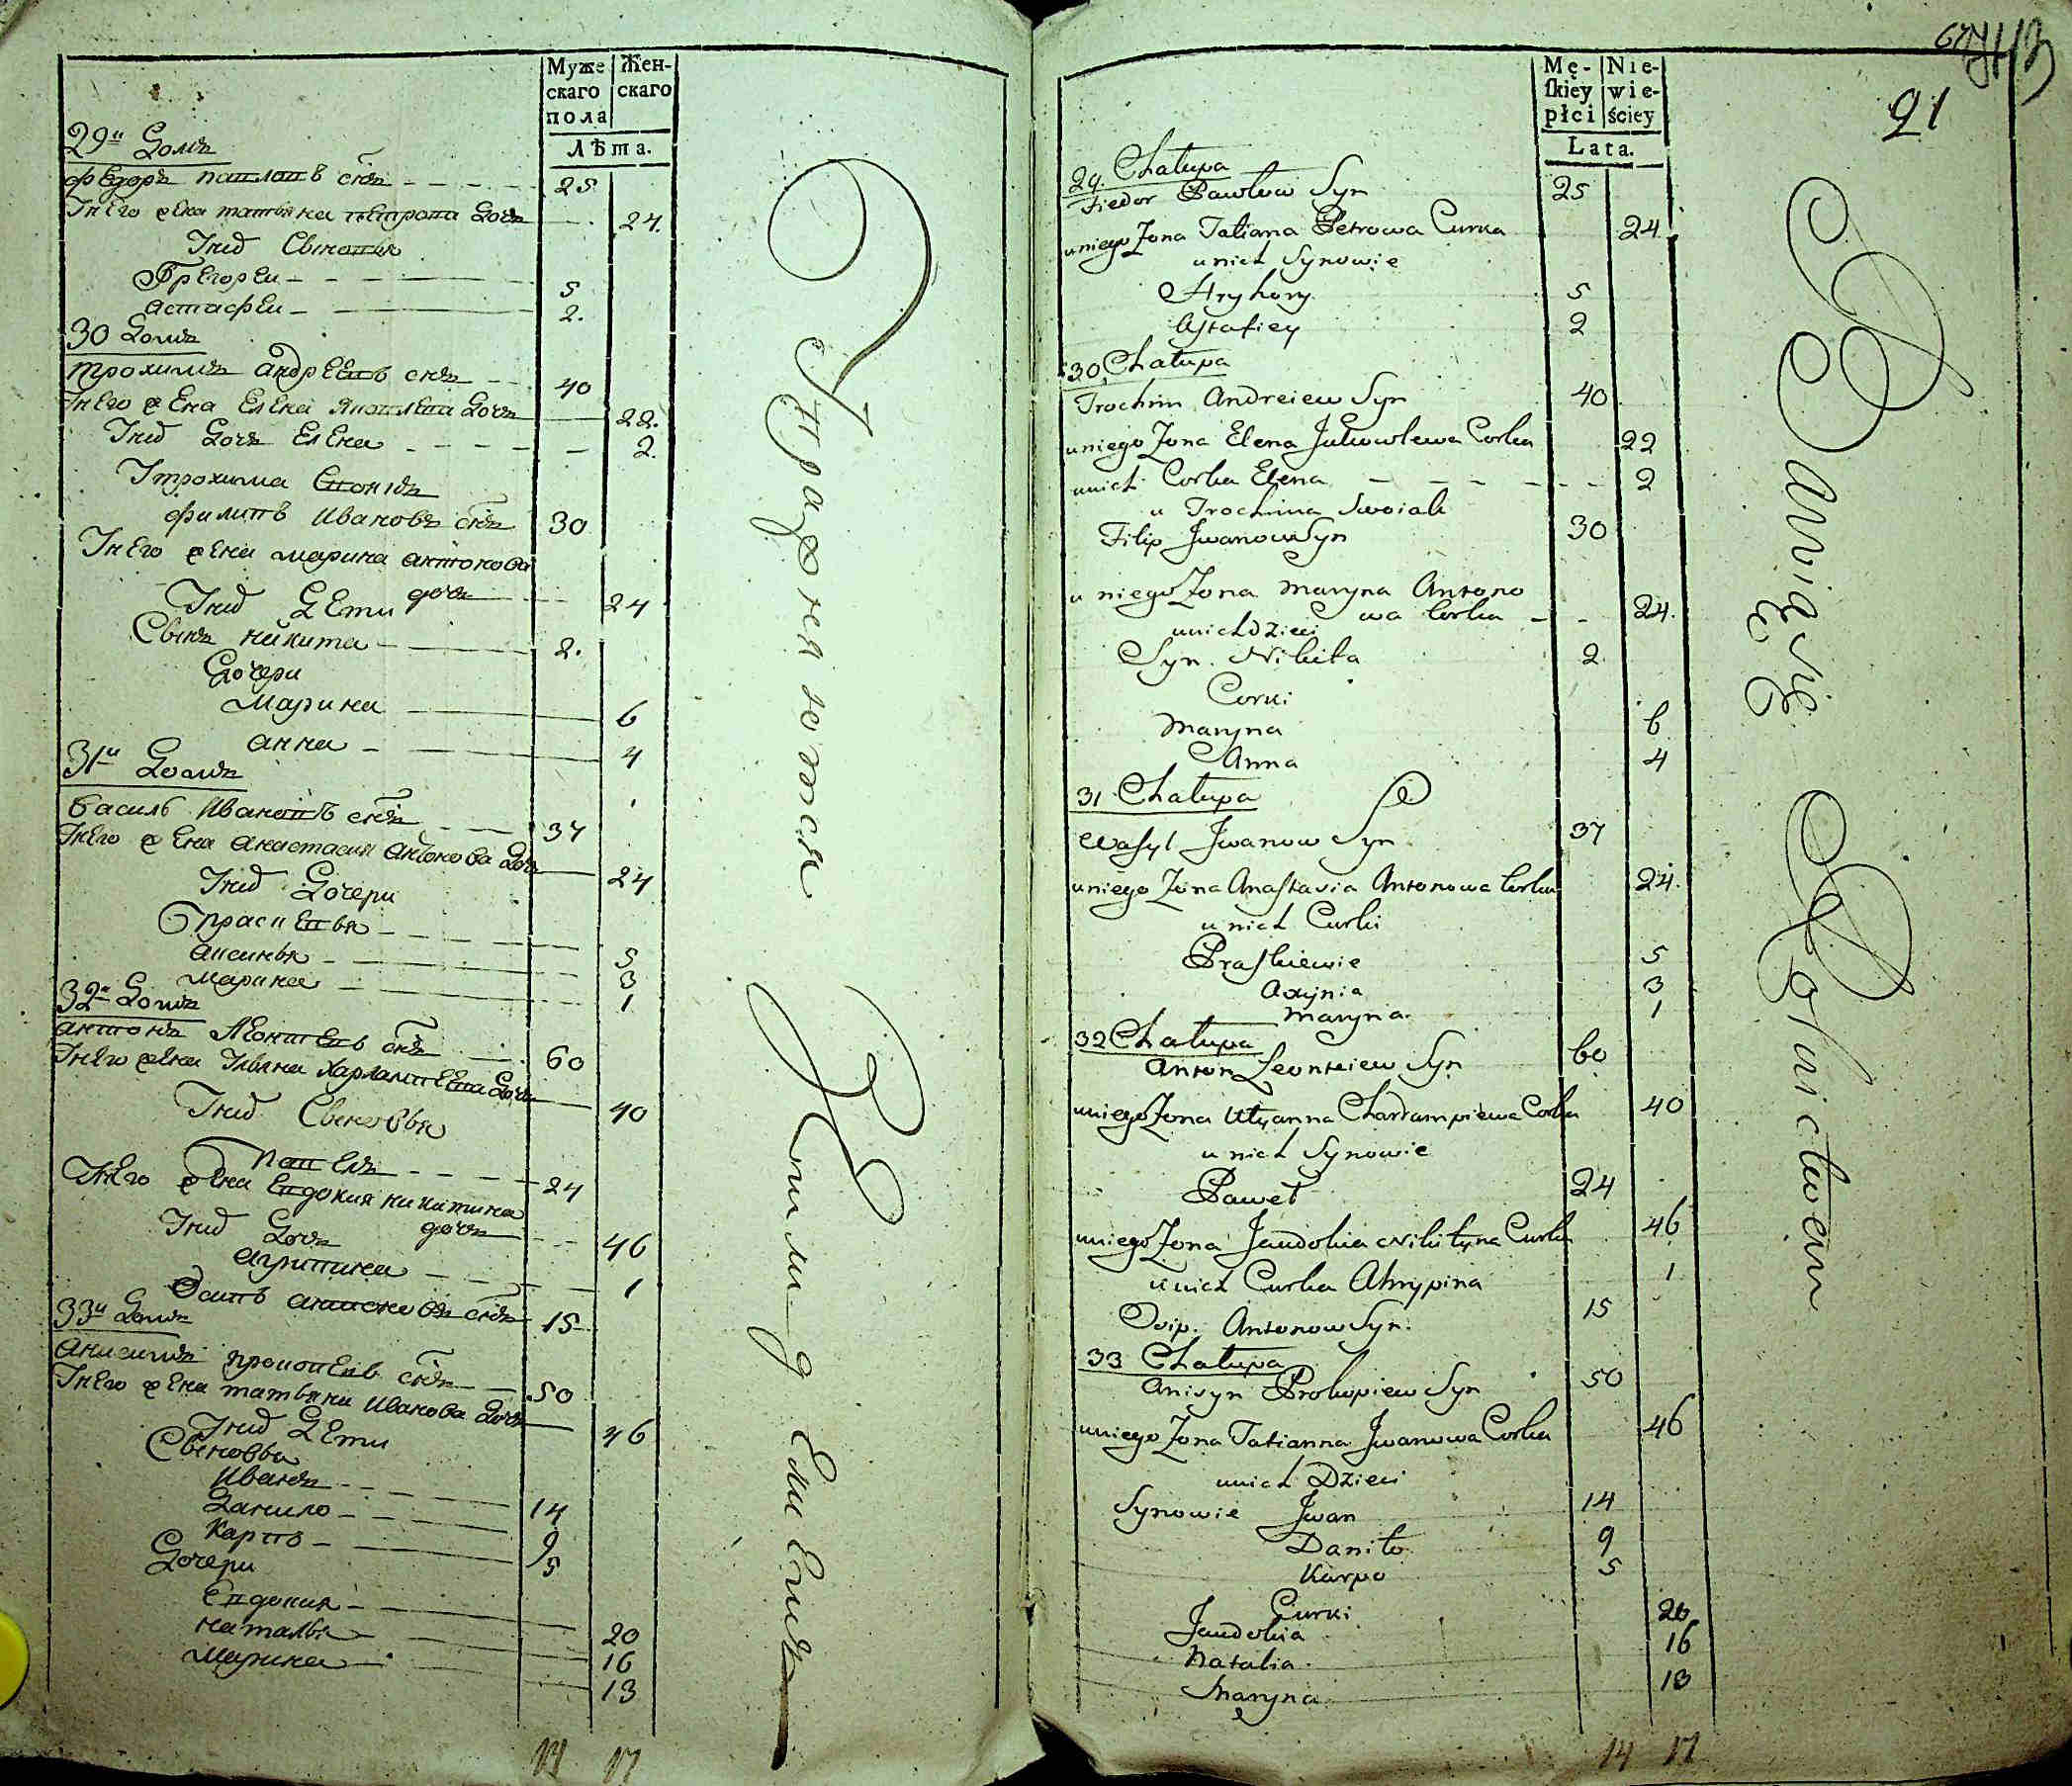 Муже Жен-
скаго скаго
пола
Лѣта.
29й Домъ
Федоръ павловъ снъ 25
Унего жена татьяна петрова дочь 24.
Унид Свиновья
Грегореи 5
Астафеи 2.
30 Домъ
трохимъ андреевъ снъ 40
Унего жена Елена Яковлева дочь 22.
Унид дочь Елена 2.
Утрохима
филипъ Ивановъ снъ 30
Унего жена марина антонова
дочь 24
Унид дети
Сынъ никита 2.
дочери
марина 6
анна 4
31й Домъ
василь Ивановъ снъ 37
Унего жена анастасия антонова дочь 24
Унид дочери
Прасковья 5
аксинья 3
марина 1
32й Домъ
антонъ Леонтевъ снъ 60
Унего жена Ульяна харлампеева дочь 40
Унид Сыновья
павелъ 24
Унего жена Евдокия никитина
дочь 46
Унид дочь
агрипина 1
Осипъ антоновъ снъ 15
33й Домъ
анисимъ прокопевъ снъ 50
Унего жена татьяна Иванова дочь 46
Унид дети
Сыновья
Иванъ 14
Данило 9
Карпъ 5
Дочери
Евдокия 20
наталья 16
марина 13
17
Упражняются
Хлити емъ
21
Mę- Nie-
skiey wie-
płci ściey
Lata.
29. Chałupa
Fiedor Pawłow Syn 25
uniego Zona Tatiana Petrowa Curka 24
unich Synowie
Hryhory 5
Astafiey 2
30 Chałupa
Trochim Andreiew Syn 40
uniego Zona Elena Jakowlewa Corka 22
unich Corka Elena 2
u Trochima Swoiak
Filip Jwanow Syn 30
u niego Zona Maryna Antono
wa Corka 24.
unich dzieci
Syn Nikita 2
Corki
Maryna 6
Anna 4
31 Chałupa
Wasyl Jwanow Syn 37
uniego Zona Anastasia Antonowa Corka 24.
unich Curki
Praskiewie 5
Axynia 3
Maryna 1
32 Chałupa
Anton Leontiew Syn 60
uniego Zona Ulyanna Charlampiewa Corka 40
unich Synowie
Paweł 24
uniego Zona Jewdokia Nikityna Curka 46
unich Curka Ahrypina 1
Osip Antonow Syn. 15
33 Chałupa
Anisyn Prokopiew Syn 50
uniego Zona Tatianna Jwanowa Corka 46
unich Dzieci
Synowie Jwan 14
Daniło 9
Karpo 5
Curki
Jewdokia 20
Natalia 16
Maryna 13
14 17
Bawią się Rolnictwem